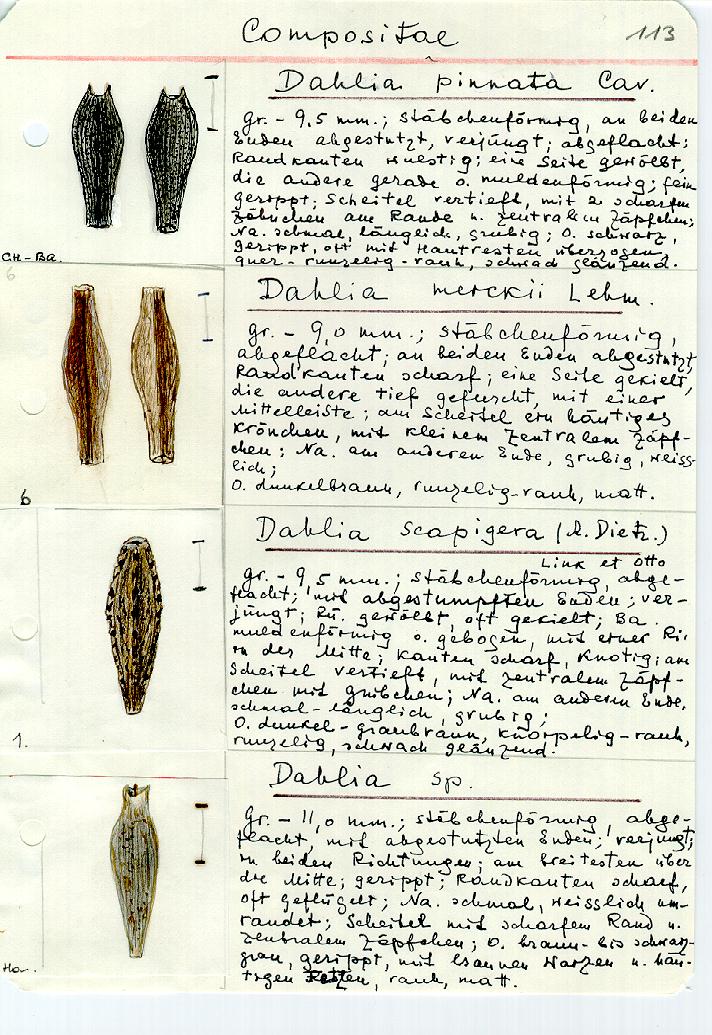 Compositae
113
Dahlia pinnata Cav.
gr. - 9,5 mm.; stäbchenförmig, an beiden
Enden abgestutzt, verjüngt; abgeflacht;
Randkanten wuestig; eine Seite gewölbt,
die andere gerade o. muldenförmig; fein
gerippt; Scheitel vertieft, mit 2 scharfen
Zähnchen am Rande u. zentralem Zäpfchen;
Na. schmal, länglich, grubig; O. schwarz,
gerippt, oft mit Hautresten überzogen,
quer-runzelig-rauh, schwach glänzend.
CH-Ba.
6
Dahlia merckii Lehm.
gr. - 9,0 mm.; stäbchenförmig,
abgeflacht; an beiden Enden abgestutzt,
Randkanten scharf; eine Seite gekielt,
die andere tief gefurcht, mit einer
Mittelleiste; am Scheitel ein häutiges
Krönchen, mit kleinem zentralem Zäpf-
chen; Na. am anderen Ende, grubig, weiss-
lich;
O. dunkelbraun, runzelig-rauh, matt.
6
Dahlia scapigera (A. Dietr.)
Link et Otto
gr. - 9,5 mm.; stäbchenförmig, abge-
flacht; mit abgestumpften Enden; ver-
jüngt; Rü. gewölbt, oft gekielt; Ba.
muldenförmig o. gebogen, mit einer Ri.
in der Mitte; Kanten scharf, knotig; am
Scheitel vertieft, mit zentralem Zäpf-
chen mit Grübchen; Na. am anderen Ende,
schmal-länglich, grubig;
O. dunkel-graubraun, knorpelig-rauh,
runzelig, schwach glänzend.
1.
Dahlia sp.
gr. - 11,0 mm.; stäbchenförmig, abge-
flacht, mit abgestutzten Enden; verjüngt;
in beiden Richtungen; am breitesten über
die Mitte; gerippt; Randkanten scharf,
oft geflügelt; Na. schmal, weisslich um-
randet; Scheitel mit scharfem Rand u.
zentralem Zäpfchen; O. braun- bis schwarz-
grau, gerippt, mit braunen Warzen u. häu-
tigen Fetzen, rauh, matt.
Ho.